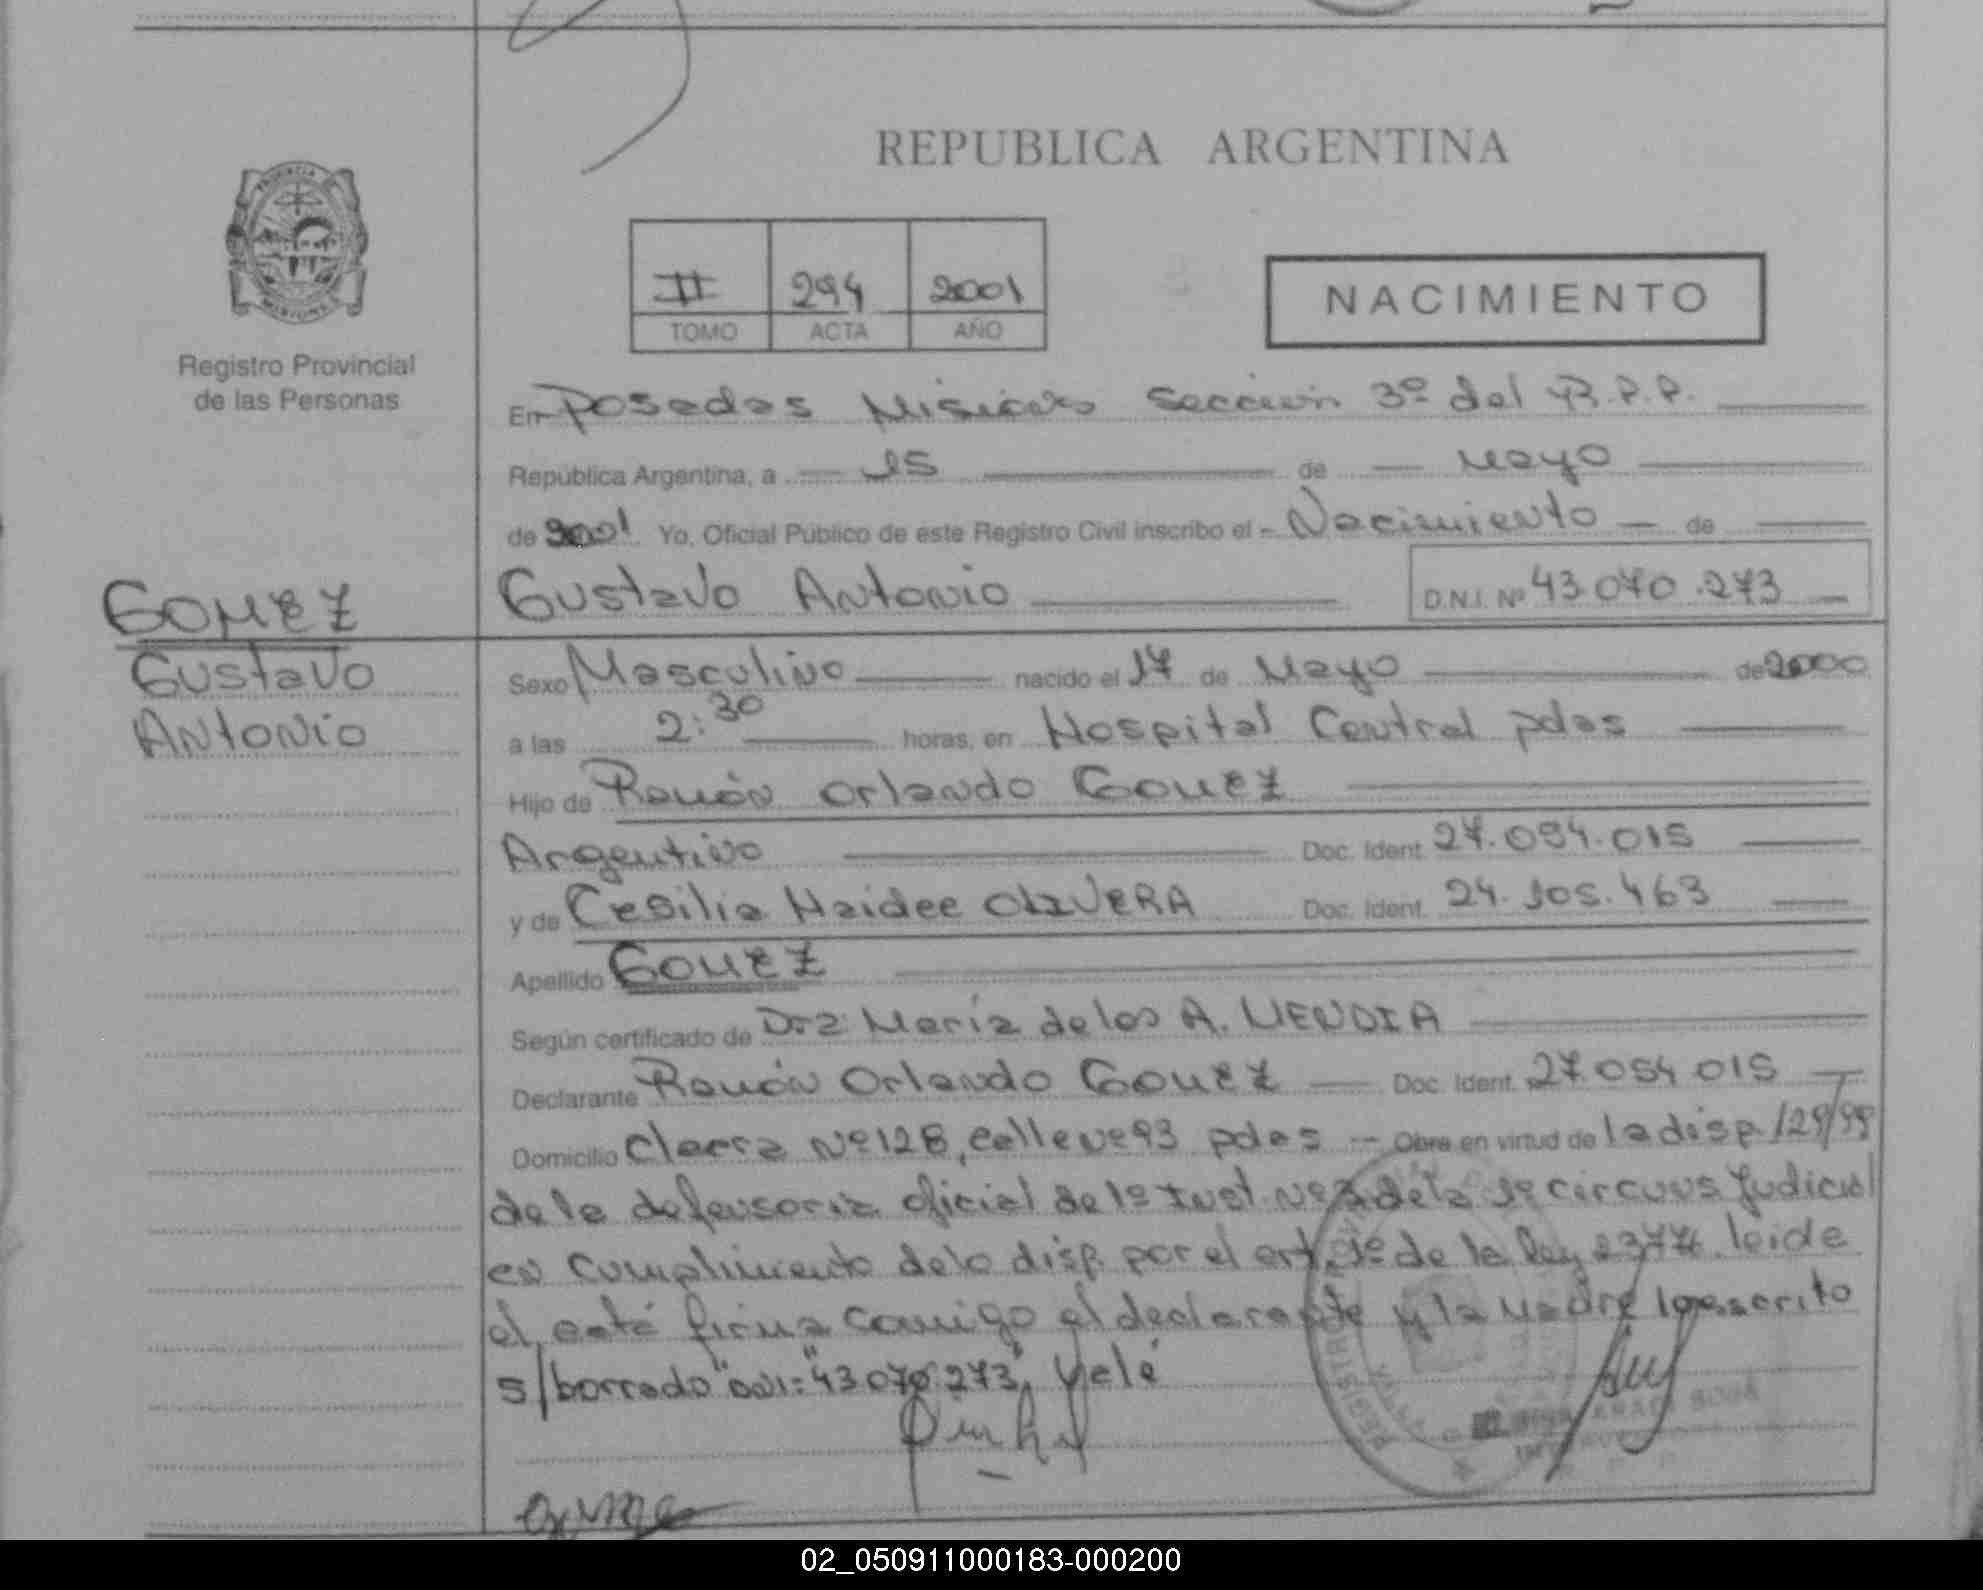 REPUBLICA ARGENTINA
II 294 2001
TOMO ACTA AÑO
NACIMIENTO
Registro Provincial
de las Personas
En Posadas Misiones sección 3º del R.P.P.
República Argentina, a 15 de Mayo
de 2001 Yo, Oficial Público de este Registro Civil inscribo el Nacimiento de
GOMEZ
Gustavo
Antonio
Gustavo Antonio D.N.I. Nº 43.070.273
Sexo Masculino nacido el 17 de Mayo de 2000
a las 2:30 horas, en Hospital Central pdas
Hijo de Ramón Orlando GOMEZ
Argentino Doc. Ident. 27.094.015
y de Cesilia Haidee OLIVERA Doc. Ident. 24.105.463
Apellido GOMEZ
Según certificado de Dra. María de los A. MENDIA
Declarante Ramón Orlando GOMEZ Doc. Ident. 27.094.015
Domicilio Chacra Nº 128, calle Nº 93 pdas Obra en virtud de la disp. 129/99
de la defensoría oficial de 1º Inst. Nº de la 1º circuns Judicial
en cumplimiento de lo disp. por el art. 1º de la ley 23776 leida
el acta firma conmigo el declarante y la madre lo escrito
s/borrado "DNI: "43.070.273" Vale
02_050911000183-000200